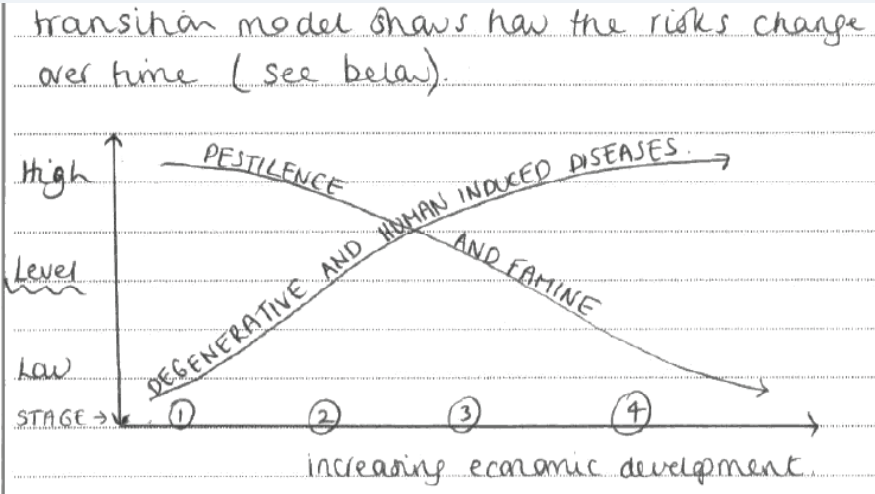 transition model shows how the risks change
over time (see below).
High
PESTILENCE AND FAMINE
DEGENERATIVE AND HUMAN INDUCED DISEASES.
Level
Low
STAGE → 1 2 3 4
increasing economic development.